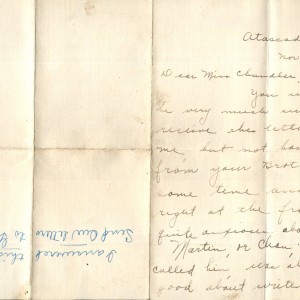 Atascad
Nov
Dear Miss Chandler,
You w
be very much su
receive this lette
me but not hav
from your Brot
some time an
right at the fro
quite anxious abo
Martin, or Chan
called him, was a
good about write
I answered this
Send Our letters to